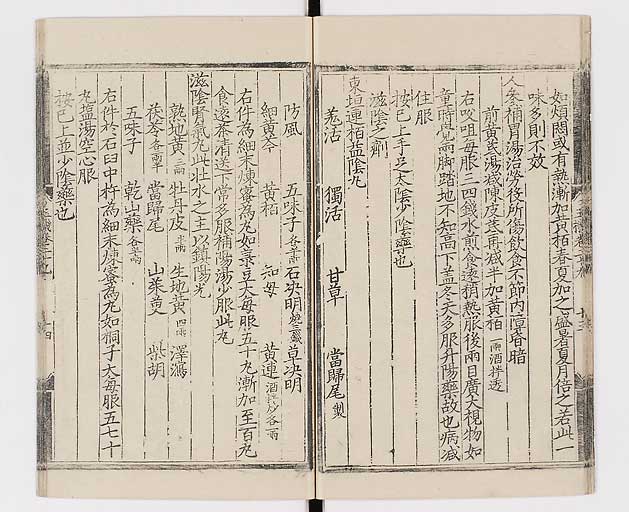 如煩悶或有熱漸加黃栢春夏加之盛暑夏月倍之若此一
味多則不效
人參補胃湯治勞役所傷飮食不節內障昏暗
前黃芪湯減陳皮芪再減半加黃栢一兩酒拌透
右㕮咀每服三四錢水煎食遠稍熱服後兩目廣大視物如
童時覺兩脚踏地不知高下盖冬天多服升陽藥故也病減
住服
按已上手足太陰少陰藥也
滋陰之劑
東垣連栢益陰丸
羗活 獨活 甘草 當歸尾製
防風 五味子各半兩 石決明 草決明
細黃芩 黃栢 知母 黃連酒炒各一兩
右件為細末煉蜜為丸如菉豆大每服五十丸漸加至百丸
食遠茶淸送下常多服補陽湯少服此丸
滋陰腎氣丸此壯水之主以鎮陽光
熟地黃三兩 牡丹皮半兩 生地黃四兩 澤瀉
茯苓各半兩 當歸尾 山茱萸 柴胡
五味子 乾山藥各半兩
右件於石臼中杵為細末煉蜜為丸如桐子大每服五七十
丸塩湯空心服
按已上並少陰藥也